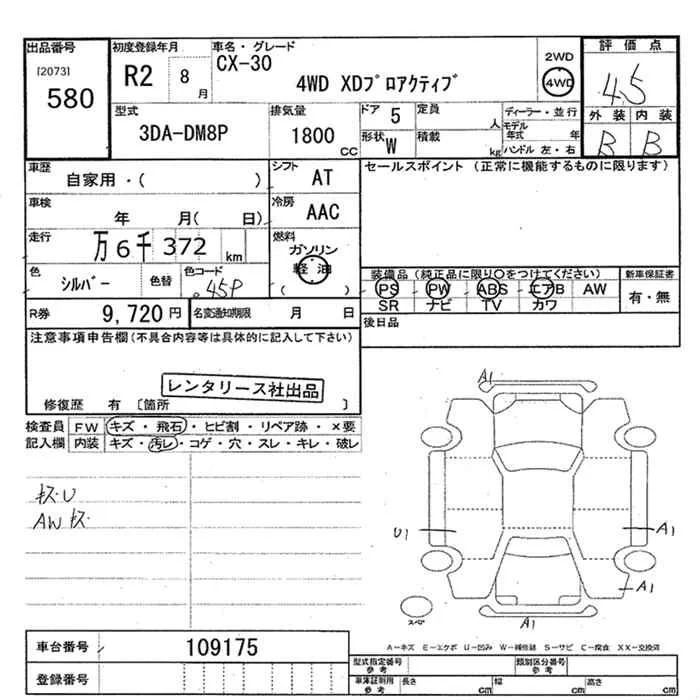 出品番号 初度登録年月 車名・グレード 2WD 評価点
[2073] R2 8月 CX-30 4WD 4.5
580 4WD XDプロアクティブ
型式 排気量 ドア 5 定員 人 ディーラー・並行 外装 内装
3DA-DM8P 1800 CC 形状 W 積載 kg モデル年式 年 B B
ハンドル 左・右
車歴 シフト セールスポイント (正常に機能するものに限ります)
自家用・( ) AT
車検 冷房
年 月( 日) AAC
走行 燃料
万6千372 km ガソリン
軽油
( )
色 色替 色コード 装備品 (純正品に限り○をつけてください) 新車保証書
シルバー 45P PS PW ABS エアB AW 有・無
SR ナビ TV カワ
R券 9,720円 名変通知期限 月 日 後日品
注意事項申告欄(不具合内容等は具体的に記入して下さい)
レンタリース社出品
修復歴 有 〔箇所 〕
検査員 FW キズ・飛石・ヒビ割・リペア跡・×要
記入欄 内装 キズ・汚レ・コゲ・穴・スレ・キレ・破レ
A1
キズU
AWキズ
U1 A1
A1
スペア A1
A-キズ E-エクボ U-凹み W-補修跡 S-サビ C-腐食 XX-交換済
車台番号 109175
登録番号
型式指定番号 参考 類別区分番号 参考
車庫証明用 参考 長さ cm 幅 cm 高さ cm